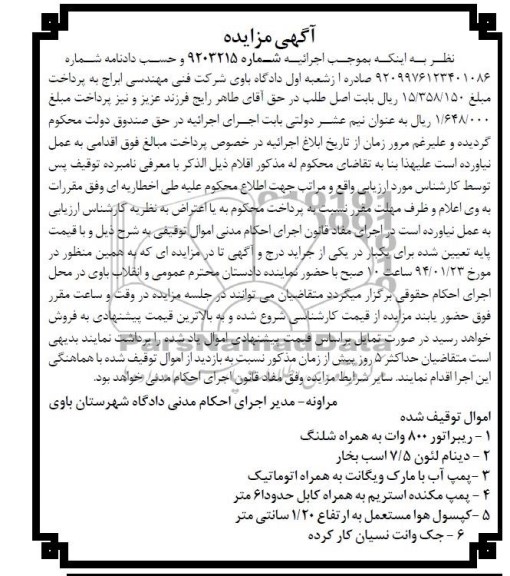 آگهی مزایده
نظر به اینکه بموجب اجرائیه شماره ۹۲۰۳۲۱۵ و حسب دادنامه شماره
۹۲۰۹۹۷۶۱۲۳۴۰۱۰۸۶ صادره ازشعبه اول دادگاه باوی شرکت فنی مهندسی ایراج به پرداخت
مبلغ ۱۵/۳۵۸/۱۵۰ ریال بابت اصل طلب در حق آقای طاهر رایج فرزند عزیز و نیز پرداخت مبلغ
۱/۶۴۸/۰۰۰ ریال به عنوان نیم عشر دولتی بابت اجرای اجرائیه در حق صندوق دولت محکوم
گردیده و علیرغم مرور زمان از تاریخ ابلاغ اجرائیه در خصوص پرداخت مبالغ فوق اقدامی به عمل
نیاورده است علیهذا بنا به تقاضای محکوم له مذکور اقلام ذیل الذکر با معرفی نامبرده توقیف پس
توسط کارشناس مورد ارزیابی واقع و مراتب جهت اطلاع محکوم علیه طی اخطاریه ای وفق مقررات
به وی اعلام و ظرف مهلت مقرر نسبت به پرداخت محکوم به یا اعتراض به نظریه کارشناس ارزیابی
به عمل نیاورده است در اجرای مفاد قانون اجرای احکام مدنی اموال توقیفی به شرح ذیل و با قیمت
پایه تعیین شده برای یکبار در یکی از جراید درج و آگهی تا در مزایده ای که به همین منظور در
مورخ ۹۴/۰۱/۲۳ ساعت ۱۰ صبح با حضور نماینده دادستان محترم عمومی و انقلاب باوی در محل
اجرای احکام حقوقی برگزار میگردد متقاضیان می توانند در جلسه مزایده در وقت و ساعت مقرر
فوق حضور یابند مزایده از قیمت کارشناسی شروع شده و به بالاترین قیمت پیشنهادی به فروش
خواهد رسید در صورت تمایل براساس قیمت پیشنهادی اموال یاد شده را پرداخت نمایند بدیهی
است متقاضیان حداکثر ۵ روز پیش از زمان مذکور نسبت به بازدید از اموال توقیف شده با هماهنگی
این اجرا اقدام نمایند. سایر شرایط مزایده وفق مفاد قانون اجرای احکام مدنی خواهد بود.
مراونه- مدیر اجرای احکام مدنی دادگاه شهرستان باوی
اموال توقیف شده
۱ - ریبراتور ۸۰۰ وات به همراه شلنگ
۲ - دینام لئون ۷/۵ اسب بخار
۳ -پمپ آب با مارک ویگانت به همراه اتوماتیک
۴ - پمپ مکنده استریم به همراه کابل حدودا۶ متر
۵ -کپسول هوا مستعمل به ارتفاع ۱/۲۰ سانتی متر
۶ - جک وانت نسیان کار کرده